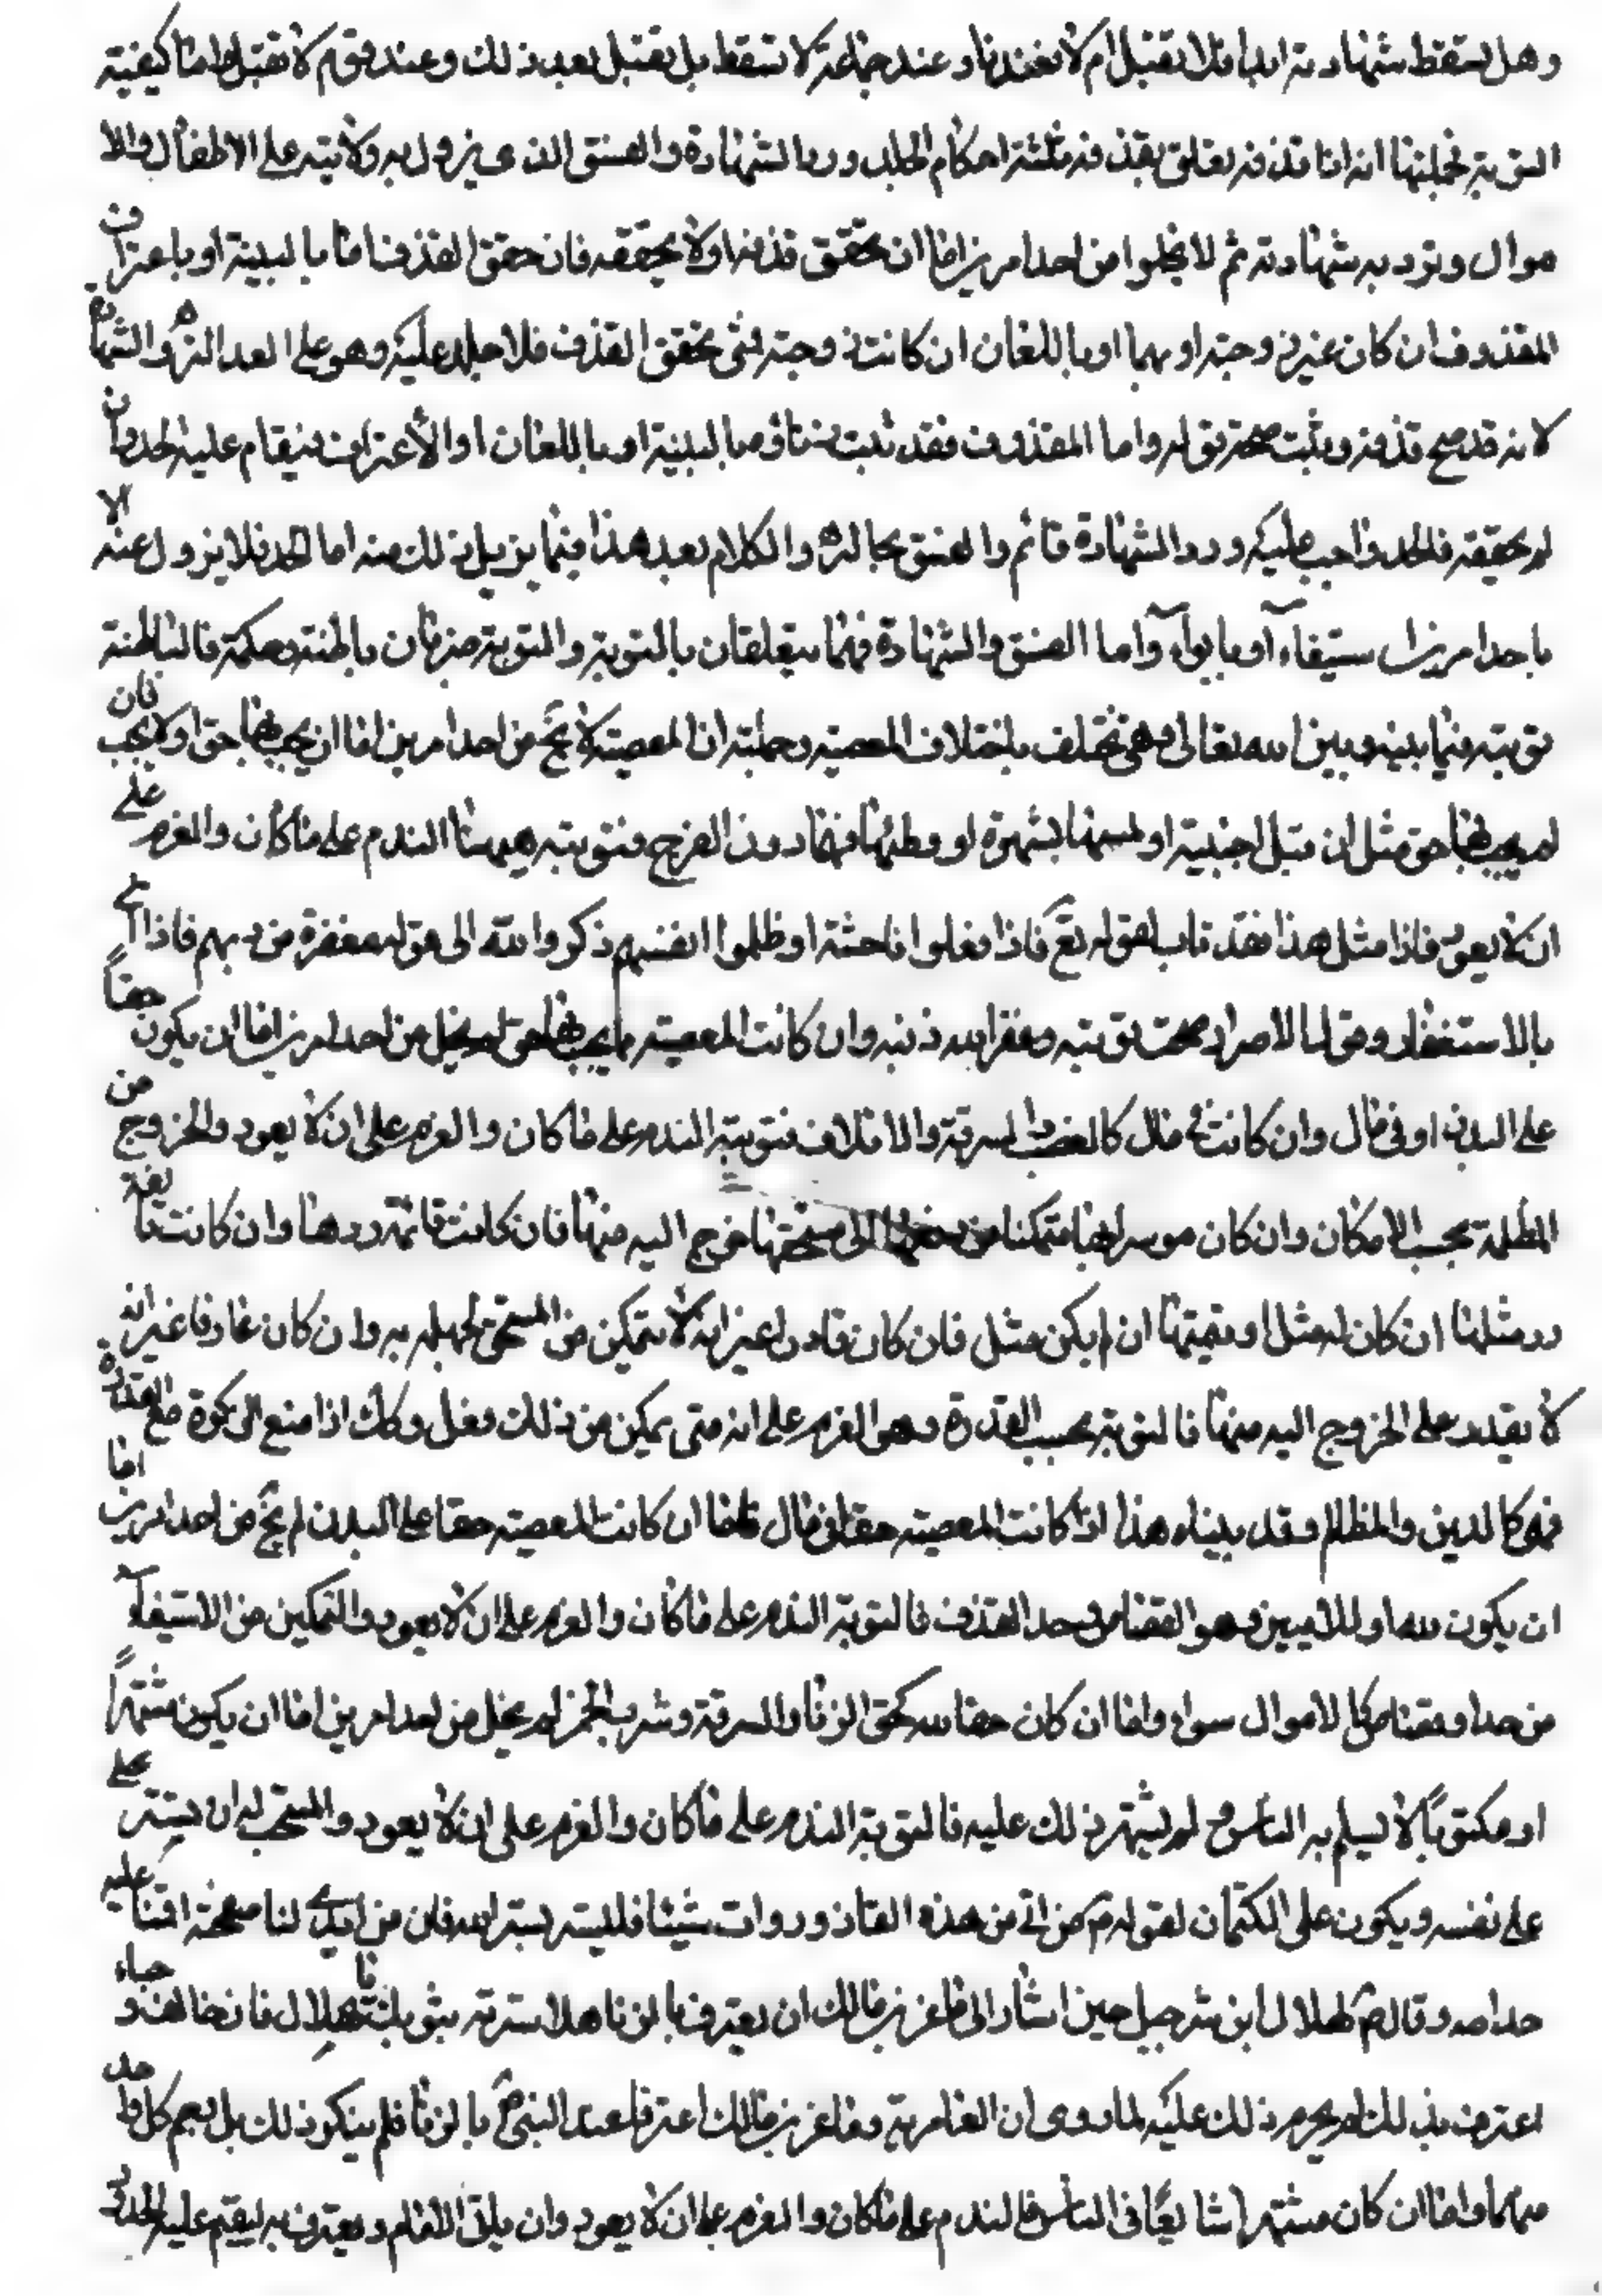 وهل تسقط شهادته ابدا فلا تقبل ام لا فعندنا وعند جماعة لا تسقط بل تقبل بعد ذلك وعند قوم لا تقبل واما كيفية
التوبة فجملتها انه اذا قذفه تعلق بقذفه ثلثة احكام الجلد ورد الشهادة والفسق الذي يزول به ولايته على الاطفال والا
موال وترد به شهادته ثم لا يخلوا من احد امرين اما ان يحقق قذفه او لا يحققه فان حقق القذف اما بالبينة او باعتراف
المقذوف ان كان غير زوجته او بهما او باللعان ان كانت زوجته فمتى تحقق القذف فلا جلد عليه وهو على العدالة والشهادة
لانه قد صح قذفه وثبت صحة قوله واما المقذوف فقد ثبت زناؤه بالبينة او باللعان او الاعتراف فيقام عليه الحد وان
لم يحققه فالحد واجب عليه ورد الشهادة قائم والفسق بحاله والكلام بعد هذا فيما يزيل ذلك منه اما الحد فلا يزول عنه الا
باحد امرين استيفاء او بابراء واما الفسق والشهادة فهما يتعلقان بالتوبة والتوبة ضربان باطنة وحكمة فالباطنة
توبته فيما بينه وبين الله تعالى وهي تختلف باختلاف المعصية وجملته ان المعصية لا تخ من احد امرين اما ان يجب بها حق او لا يجب فان
لم يجب بها حق مثل ان قبل اجنبية او لمسها بشهوة او وطئها فيما دون الفرج فتوبته هيهنا الندم على ما كان والعزم على
ان لا يعود فاذا مثل هذا فقد تاب لقوله تع فاذا فعلوا فاحشة او ظلموا انفسهم ذكروا الله الى قوله مغفرة من ربهم فاذا اتى
بالاستغفار وقوله الاصرار صحت توبته وغفر الله ذنبه وان كانت المعصية مما يجب بها حق لم يخل من احد امرين اما ان يكون حقاً
على البدن او في مال وان كانت في مال كالغصب والسرقة والاتلاف فتوبته الندم على ما كان والعزم على ان لا يعود والخروج من
المظلمة بحسب الامكان وان كان موسرا بها متمكنا من دفعها الى مستحقها خرج اليه منها فان كانت قائمة ردها وان كانت تالفة
رد مثلها ان كان له مثل او قيمتها ان لم يكن مثل فان كان قادرا غير انه لا يتمكن من المستحق لجهله به وان كان عارفا غير انه
لا يقدر على الخروج اليه منها فالتوبة بحسب القدرة وهو العزم على انه متى يمكن من ذلك فعل وكك اذا منع الزكوة مع القدرة
فهي كالدين والمظالم وقد بيناه هذا اذا كانت المعصية حقا في مال فاما ان كانت المعصية حقا على البدن لم تخ من احد امرين اما
ان يكون لله او للادميين وهو القصاص وحد القذف فالتوبة الندم على ما كان والعزم على ان لا يعود والتمكين من الاستيفاء
من حد او قصاص كالاموال سواء واما ان كان حقا لله كحق الزنا والسرقة وشرب الخمر لم يخل من احد امرين اما ان يكون مشتهراً
او مكتوباً لا يعلم به الناس ولم يشتهر ذلك عليه فالتوبة الندم على ما كان والعزم على ان لا يعود والمستحب له ان يستر على
على نفسه ويكون على الكتمان لقوله م من اتى من هذه القاذورات شيئا فليستر بستر الله فان من ابدى لنا صفحته اقمنا عليه
حد الله وقال ص لهلال ابن شرحبيل حين اشار الى ماعز بن مالك ان يعترف بالزنا هلا سترته بثوبك يا هلال فان خالف وجاء
اعترف بذلك لم يحرم ذلك عليه لما روى ان الغامرية وماعز بن مالك اعترفا عند النبي ص بالزنا فلم ينكر ذلك بل رجم كل واحد
منهما واما ان كان مشتهرا شايعًا في الناس فالندم على ما كان والعزم على ان لا يعود وان ياتى الامام ويعترف به ليقيم عليه الحدود